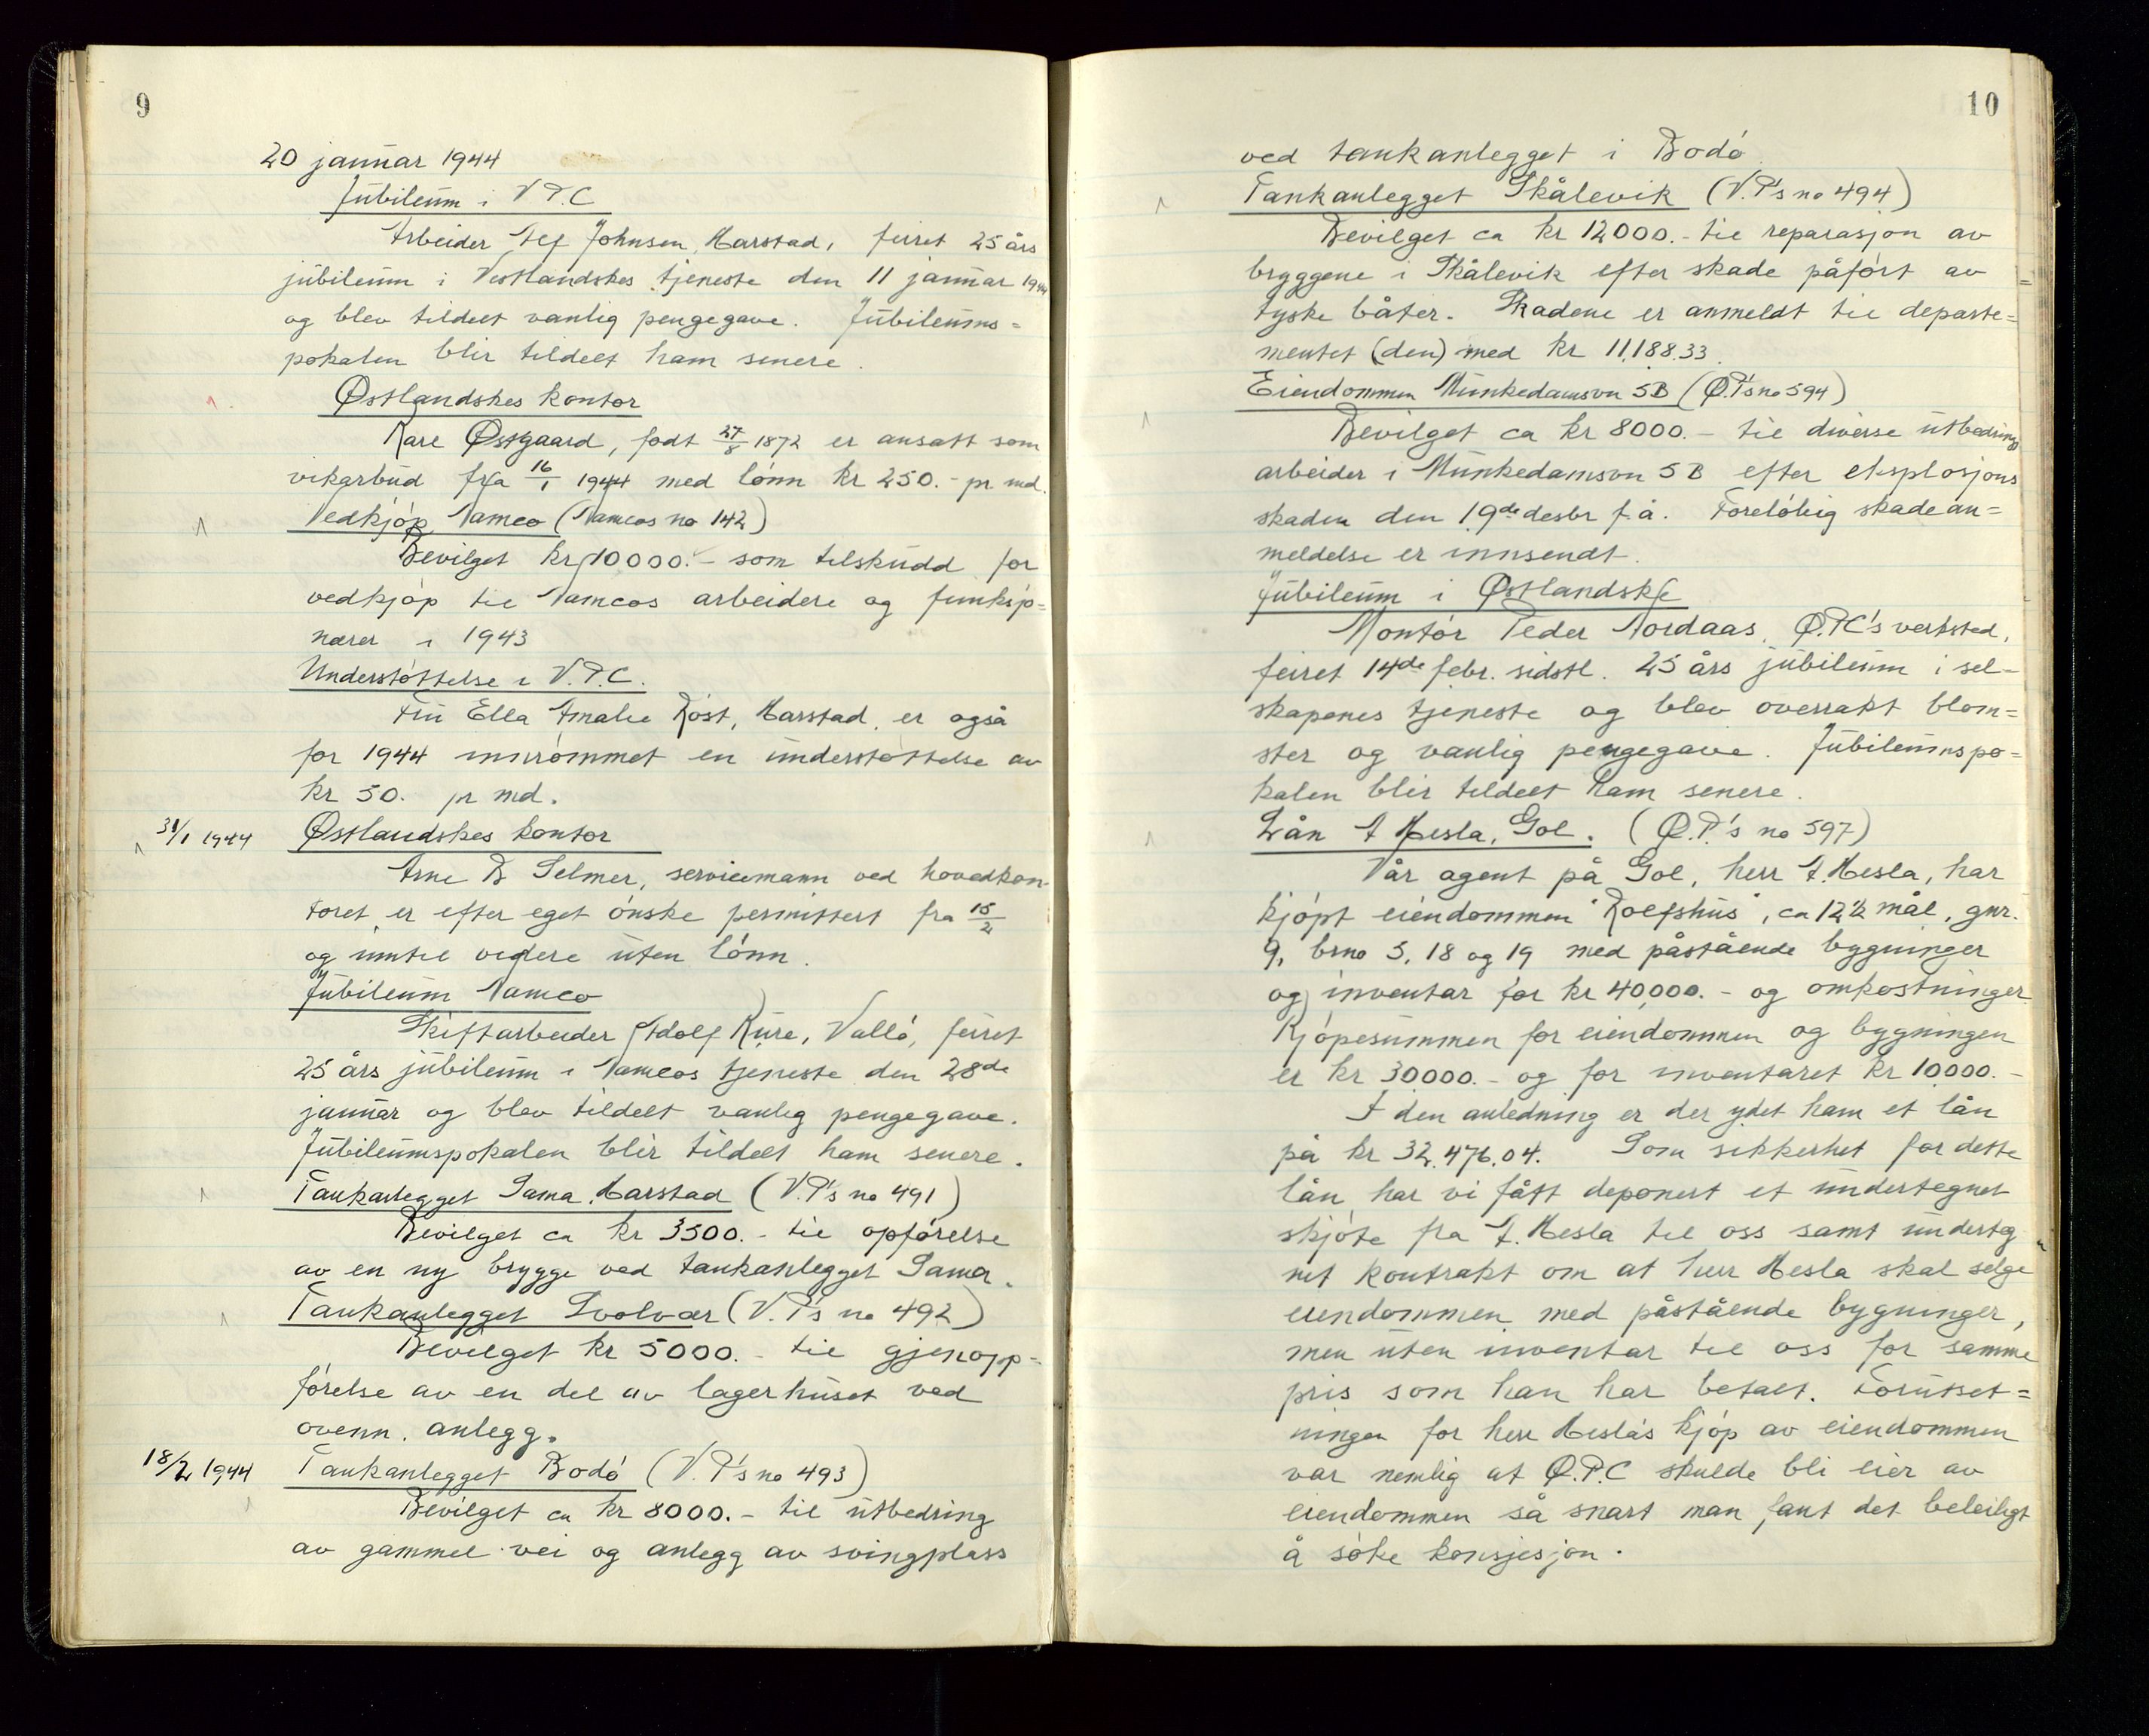 9
20 januar 1944
Jubileum i V.P.C
Arbeider Alf Johnsen, Harstad, feiret 25 års
jubileum i Vestlandskes tjeneste den 11 januar 1944
og blev tildelt vanlig pengegave. Jubileums=
pokalen blir tildelt ham senere.
Østlandskes kontor
Kåre Østgaard, født 27/8 1872 er ansatt som
vikarbud fra 16/1 1944 med lønn kr 250.- pr md.
Vedkjøp Namco (Namcos no 142)
Bevilget kr 10000.- som tilskudd for
vedkjøp til Namcos arbeidere og funksjo=
nærer i 1943
Understøttelse i V.P.C.
Fru Ella Amalie Røst, Harstad, er også
for 1944 innrømmet en understøttelse av
kr 50. pr md.
31/1 1944 Østlandskes kontor
Arne B Selmer, servicemann ved hovedkon-
toret er efter eget ønske permittert fra 15/2
og inntil videre uten lønn.
Jubileum Namco
Skiftarbeider Adolf Kure, Vallø, feiret
25 års jubileum i Namcos tjeneste den 28de
januar og blev tildelt vanlig pengegave.
Jubileumspokalen blir tildelt ham senere.
Tankanlegget Sama, Harstad (V.P's no 491)
Bevilget ca kr 3500.- til opførelse
av en ny brygge ved tankanlegget Sama.
Tankanlegget Svolvær (V.P's no 492)
Bevilget kr 5000.- til gjenopp=
førelse av en del av lagerhuset ved
ovenn. anlegg.
18/2 1944 Tankanlegget Bodø (V.P's no 493)
Bevilget ca kr 8000.- til utbedring
av gammel vei og anlegg av svingplass
10
ved tankanlegget i Bodø.
Tankanlegget Skålevik (V.P's no 494)
Bevilget ca kr 12000.- til reparasjon av
bryggene i Skålevik efter skade påført av
tyske båter. Skadene er anmeldt til departe=
mentet (den) med kr 11.188.33.
Eiendommen Munkedamsvn 5B (Ø.P's no 594)
Bevilget ca kr 8000.- til diverse utbedrings
arbeider i Munkedamsvn 5B efter eksplosjons
skaden den 19de desbr f.å. Foreløbig skadean=
meldelse er innsendt.
Jubileum i Østlandske
Montør Peder Nordaas, Ø.P.C's verksted,
feiret 14de febr. sidstl. 25 års jubileum i sel-
skapenes tjeneste og blev overrakt blom=
ster og vanlig pengegave. Jubileumspo=
kalen blir tildelt ham senere.
Lån A Mesla, Gol. (Ø.P.'s no 597)
Vår agent på Gol, herr A. Mesla, har
kjøpt eiendommen "Rolfshus", ca 12½ mål, gnr.
9, brno 5, 18 og 19 med påstående bygninger
og inventar for kr 40,000.- og omkostninger
Kjøpesummen for eiendommen og bygningen
er kr 30.000.- og for inventaret kr 10.000.-
I den anledning er der ydet ham et lån
på kr 32.476.04. Som sikkerhet for dette
lån har vi fått deponert et undertegnet
skjøte fra A. Mesla til oss samt underteg
net kontrakt om at herr Mesla skal selge
eiendommen med påstående bygninger,
men uten inventar til oss for samme
pris som han har betalt. Forutset=
ningen for herr Mesla's kjøp av eiendommen
var nemlig at Ø.P.C skulde bli eier av
eiendommen så snart man fant det beleiligt
å søke konsjesjon.